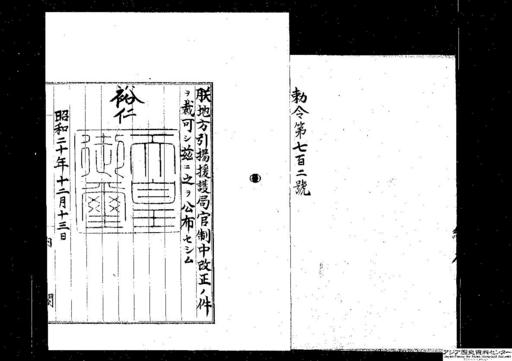 勅令第七百二號
朕地方引揚援護局官制中改正ノ件
ヲ裁可シ茲ニ之ヲ公布セシム
裕仁
天皇御璽
昭和二十年十二月十三日
アジア歴史資料センター